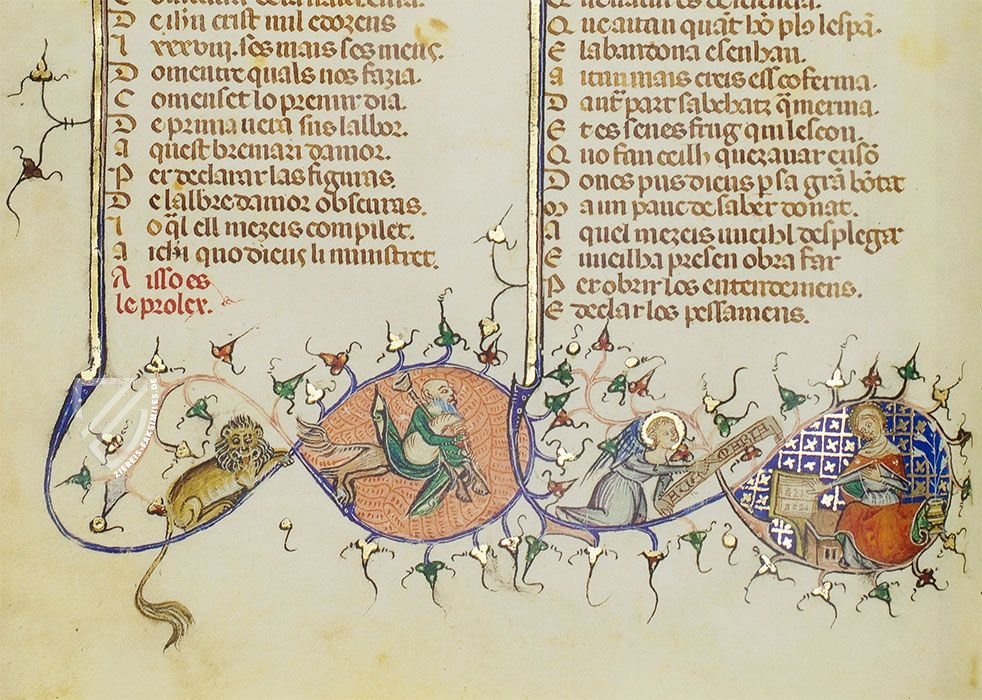 D e ihu crist mil edozens
I xxxviii. ses mais ses mens.
D omentre quals nos fazia.
C omenset lo premir dia.
D e prima uera sus lalbor.
A quest breuiari damor.
P er declarar las figuras.
D e lalbre damor obscuras.
I o q̃l ell mezeis compilet.
A ichi quo dieus li ministret.
A isso es
le prolex.
Q ue aitan quãt bõ plo lespã.
E labandona e senhan.
A itan mais creis ess coferma.
D autr̃ part sabchatz q̃ merma.
E t es senes frug qui lescon.
Q uo fan ceilh quez auar en sõ
D ones pus dieus p sa grã bõtat
M a un pauc de saber donat.
A quel mezeis uueihl desplegar
E uueilha presen obra far
P er obrir los entendemens.
E declar los pessamens.
MARIA
ZIEREIS-FAKSIMILES.DE